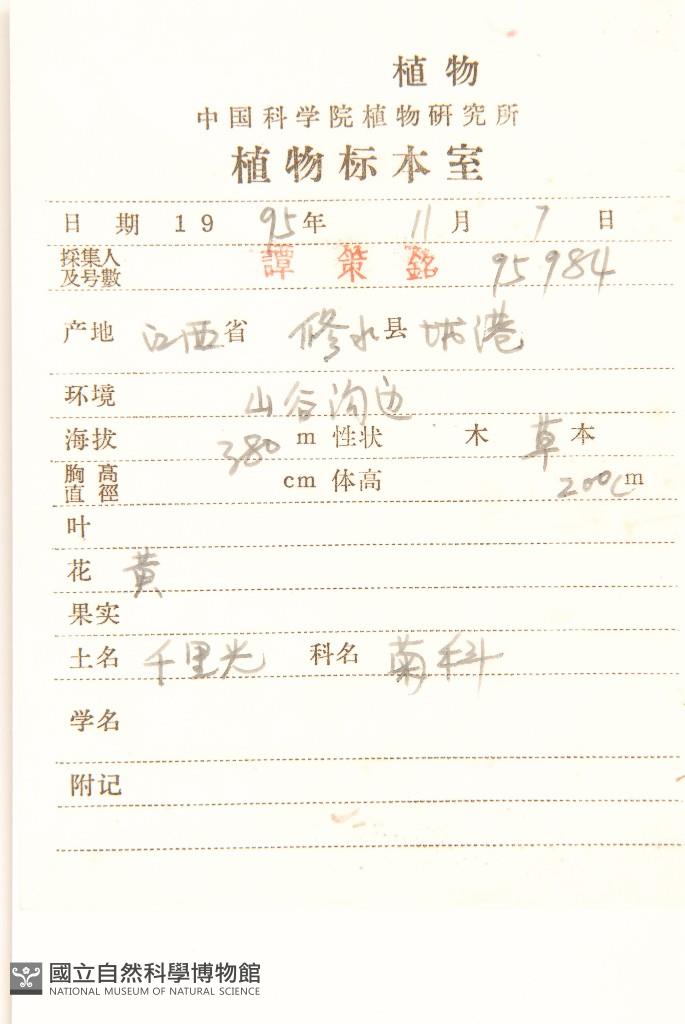 植物
中国科学院植物研究所
植物标本室
日期 19 95 年 11 月 7 日
採集人及号數 譚策銘 95984
产地 江西省 修水县 城港
环境 山谷沟边
海拔 380 m 性状 木 草 本
胸高直徑 cm 体高 200c m
叶
花 黄
果实
土名 千里光 科名 菊科
学名
附记
國立自然科學博物館
NATIONAL MUSEUM OF NATURAL SCIENCE